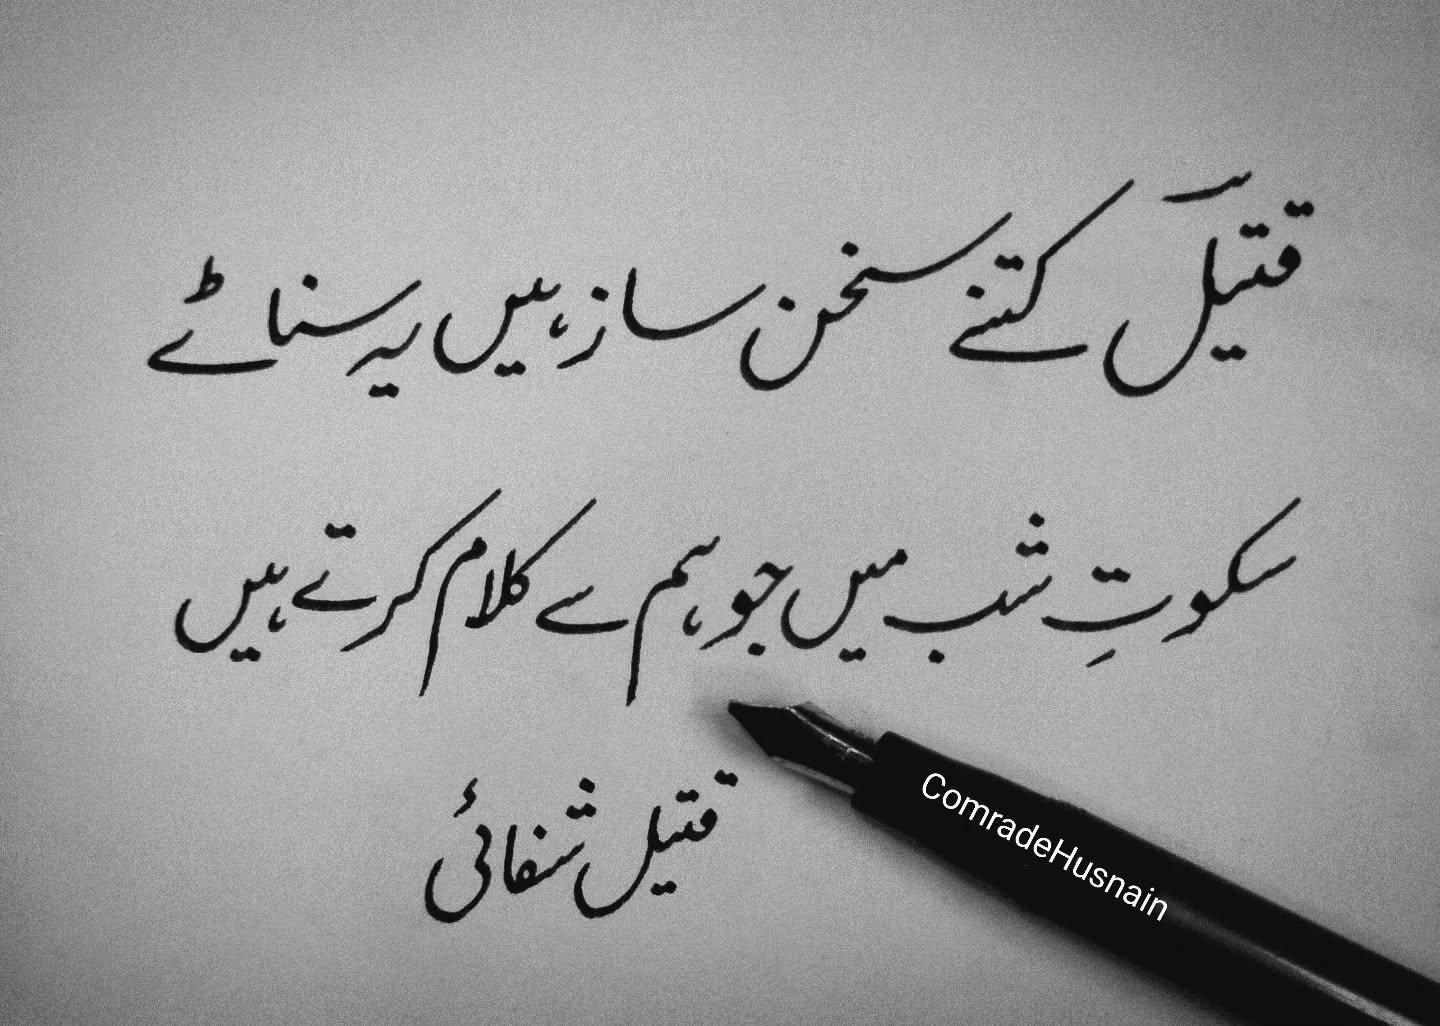 قتیلؔ کتنے سخن ساز ہیں یہ سناٹے
سکوتِ شب میں جو ہم سے کلام کرتے ہیں
قتیل شفائی
ComradeHusnain